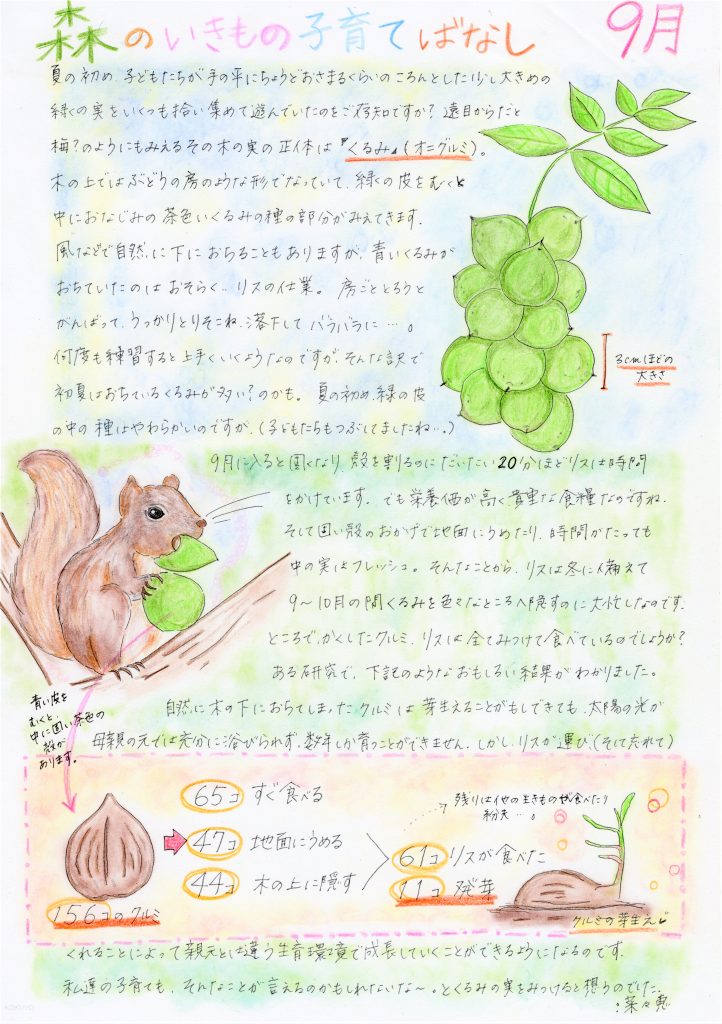 森のいきもの子育てばなし 9月
夏の初め、子どもたちが手の平にちょうどおさまるくらいのころんとした少し大きめの
緑の実をいくつも拾い集めて遊んでいたのをご存知ですか？遠目からだと
梅？のようにもみえるその木の実の正体は『くるみ』(オニグルミ)。
木の上ではぶどうの房のような形でなっていて、緑の皮をむくと
中におなじみの茶色いくるみの種の部分がみえてきます。
風などで自然に下におちることもありますが、青いくるみが
おちていたのはおそらく、リスの仕業。房ごととろうと
がんばって、うっかりとりそこね、落下してバラバラに…。
何度も練習すると上手くいくようなのですが、そんな訳で
初夏はおちているくるみが多い？のかも。夏の初め、緑の皮
の中の種はやわらかいのですが、(子どもたちもつぶしてましたね…。)
3cmほどの
大きさ
9月に入ると固くなり、殻を割るのにだいたい20分ほどリスは時間
をかけています。でも栄養価が高く貴重な食糧なのですね。
そして固い殻のおかげで地面にうめたり、時間がたっても
中の実はフレッシュ。そんなことから、リスは冬に備えて
9〜10月の間くるみを色々なところへ隠すのに大忙しなのです。
ところで、かくしたクルミ、リスは全てみつけて食べているのでしょうか？
ある研究で、下記のようなおもしろい結果がわかりました。
青い皮を
むくと、
中に固い茶色の
殻が
あります。
自然に木の下におちてしまったクルミは芽生えることがもしできても、太陽の光が
母親の元では充分に浴びられず、数年しか育つことができません。しかし、リスが運び、(そして忘れて)
156コのクルミ
65コ すぐ食べる
47コ 地面にうめる
44コ 木の上に隠す
残りは他の生きものが食べたり
紛失…。
61コ リスが食べた
11コ 発芽
クルミの芽生え
くれることによって親元とは違う生育環境で成長していくことができるようになるのです。
私達の子育ても、そんなことが言えるのかもしれないな〜。とくるみの実をみつけると想うのでした。
：菜々恵